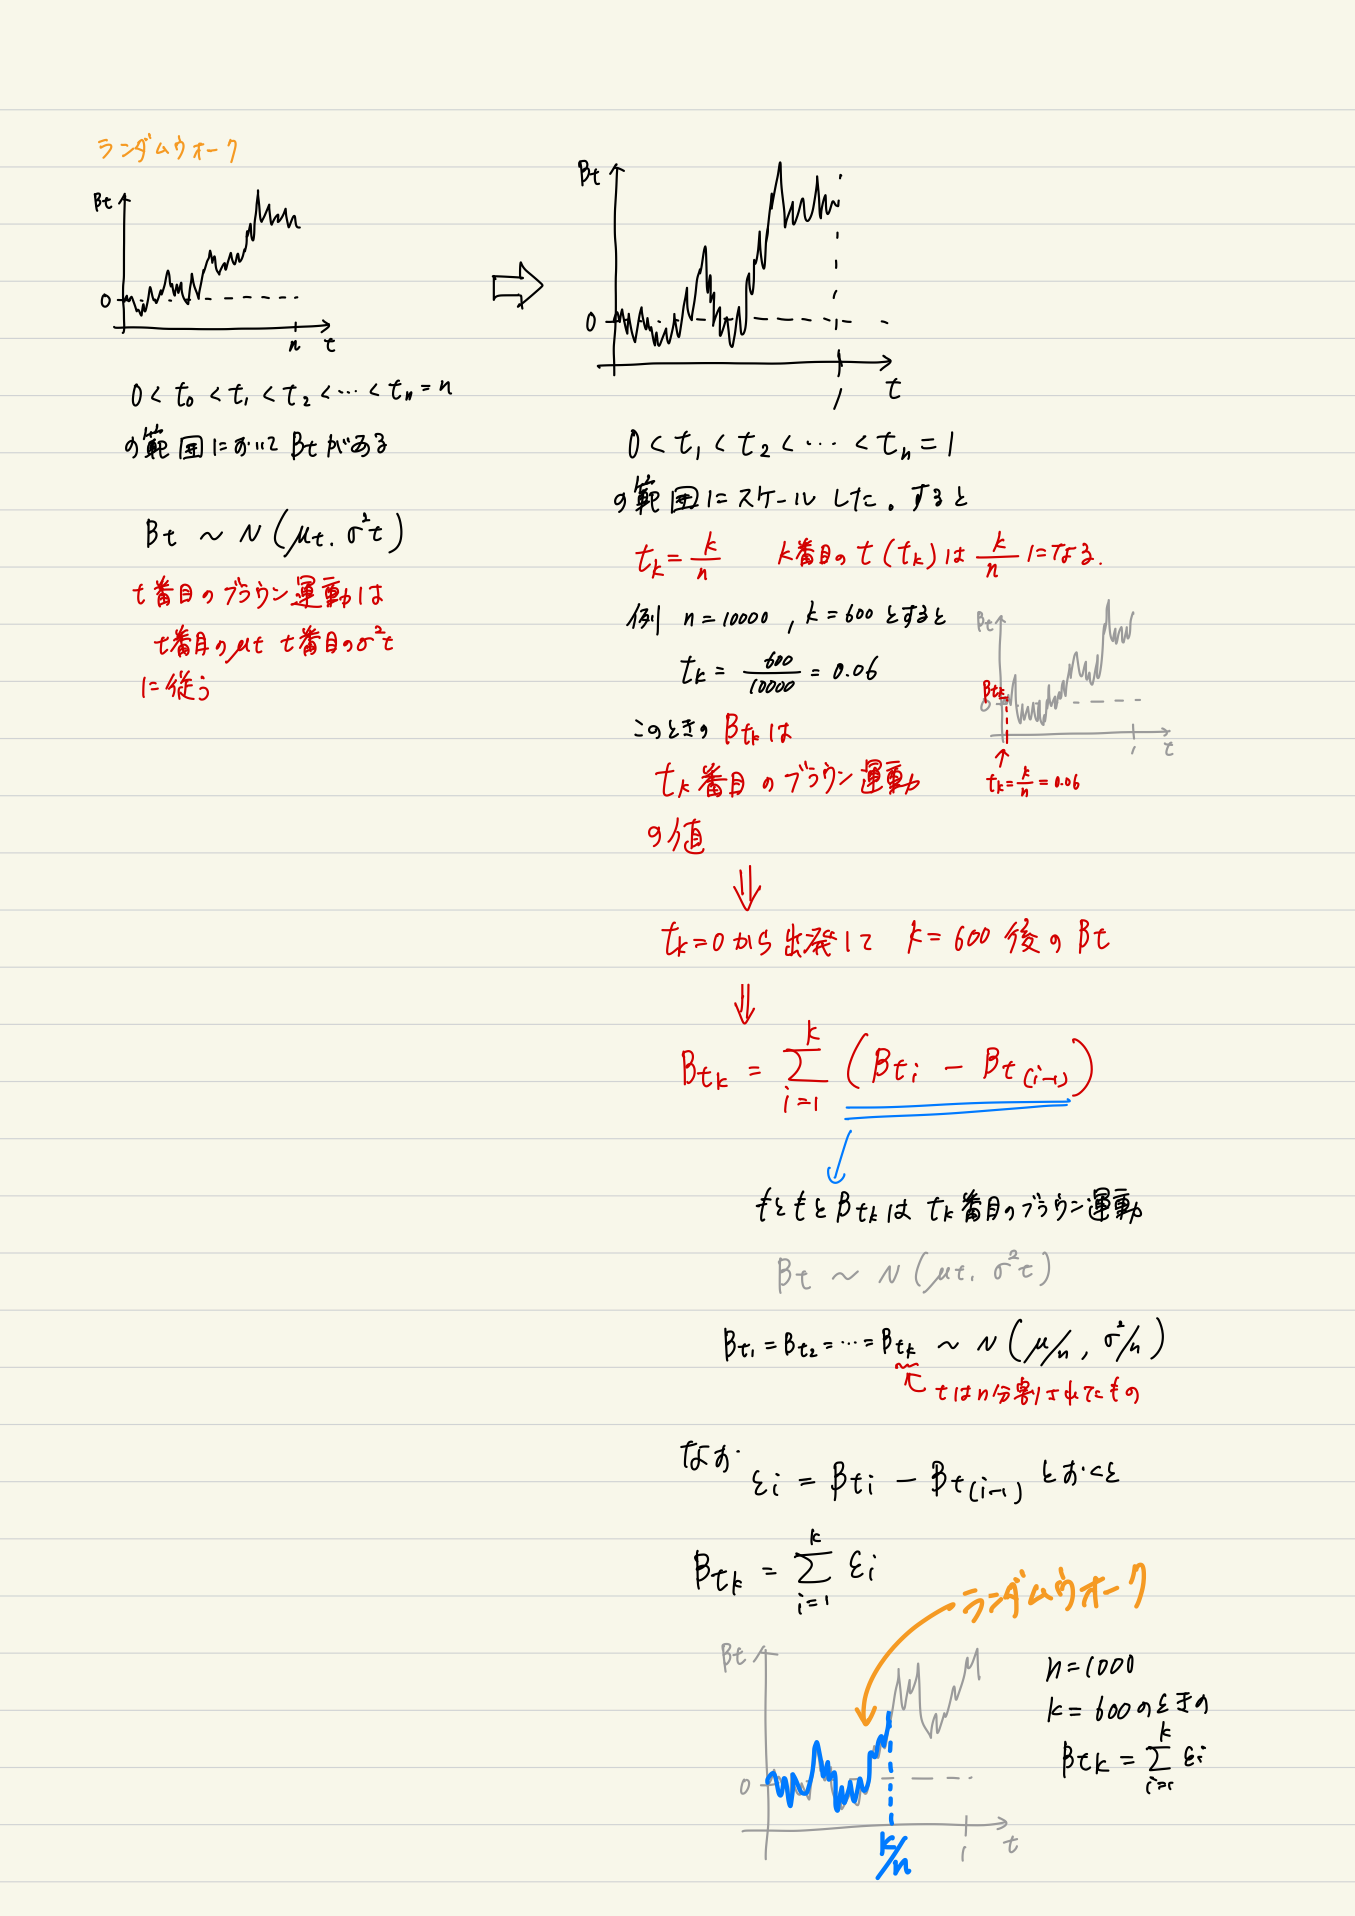 ランダムウォーク
Bt
0
n
t
0 < t₀ < t₁ < t₂ < … < tₙ = n
の範囲において Bt がある
Bt ~ N(μt, σ²t)
t番目のブラウン運動は
t番目のμt t番目のσ²t
に従う
Bt
0
1
t
0 < t₁ < t₂ < … < tₙ = 1
の範囲にスケールした。すると
tₖ = k/n k番目のt(tₖ)は k/n になる.
例 n = 10000, k = 600 とすると
tₖ = 600/10000 = 0.06
このときの Btₖ は
tₖ番目のブラウン運動
の値
Bt
Btₖ
0
1
t
tₖ = k/n = 0.06
⇓
tₖ=0から出発して k=600後のBt
⇓
Btₖ = Σ_{i=1}^{k} (Btᵢ - Bt₍ᵢ₋₁₎)
もともとBtₖはtₖ番目のブラウン運動
Bt ~ N(μt, σ²t)
Bt₁ = Bt₂ = … = Btₖ ~ N(μ/n, σ²/n)
tはn分割されたもの
なお
εᵢ = Btᵢ - Bt₍ᵢ₋₁₎ とおくと
Btₖ = Σ_{i=1}^{k} εᵢ
ランダムウォーク
Bt
0
k/n
1
t
n=1000
k=600のときの
Btₖ = Σ_{i=1}^{k} εᵢ